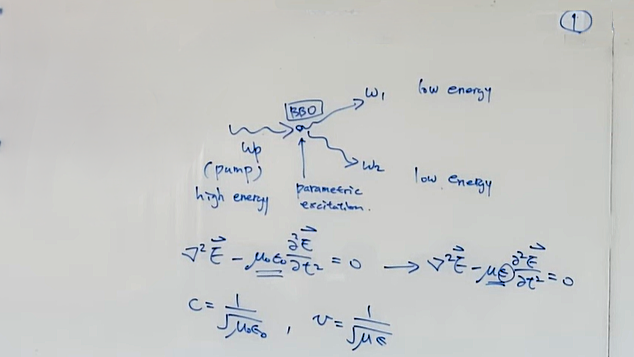 ①
ω₁ low energy
BBO
ωp
(pump)
high energy
ω₂ low energy
parametric
excitation.
∇²E⃗ - μ₀ε₀ ∂²E⃗/∂t² = 0 → ∇²E⃗ - με ∂²E⃗/∂t² = 0
c = 1/√μ₀ε₀ , v = 1/√με